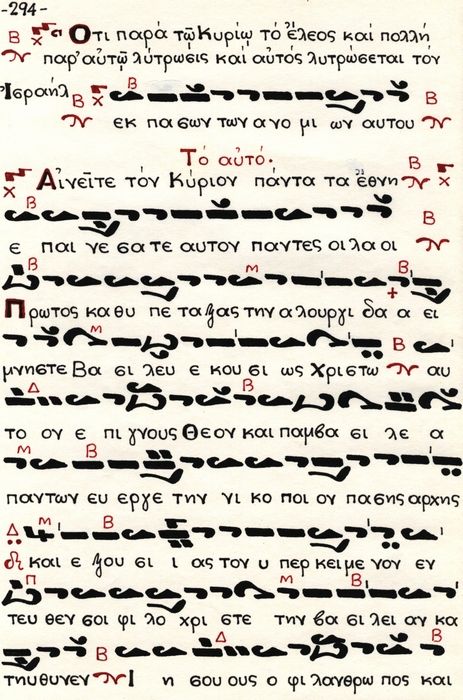 -294-
Ὅτι παρὰ τῷ Κυρίῳ τὸ ἔλεος καὶ πολλὴ
παρ' αὐτῷ λύτρωσις καὶ αὐτὸς λυτρώσεται τὸν
Ἰσραήλ
εκ πασων των ανο μι ων αυτου
Τὸ αὐτό.
Αἰνεῖτε τὸν Κύριον πάντα τα ἔθνη
ε παι νε σα τε αυτον παντες οι λα οι
Πρωτος κα θυ πε τα ξας την α λουργι δα α ει
μνηστε Βα σι λευ ε κου σι ως Χριστω αυ
το ον ε πι γνους Θεον και παμβα σι λε α
παντων ευ εργε την νι κο ποι ον πασης αρχης
και ε ξου σι ι ας τον υ περ κει με νον εν
τευ θεν σοι φι λο χρι στε την βα σι λει αν κα
τηυθυνεν Ι η σου ους ο φι λανθρω πος και